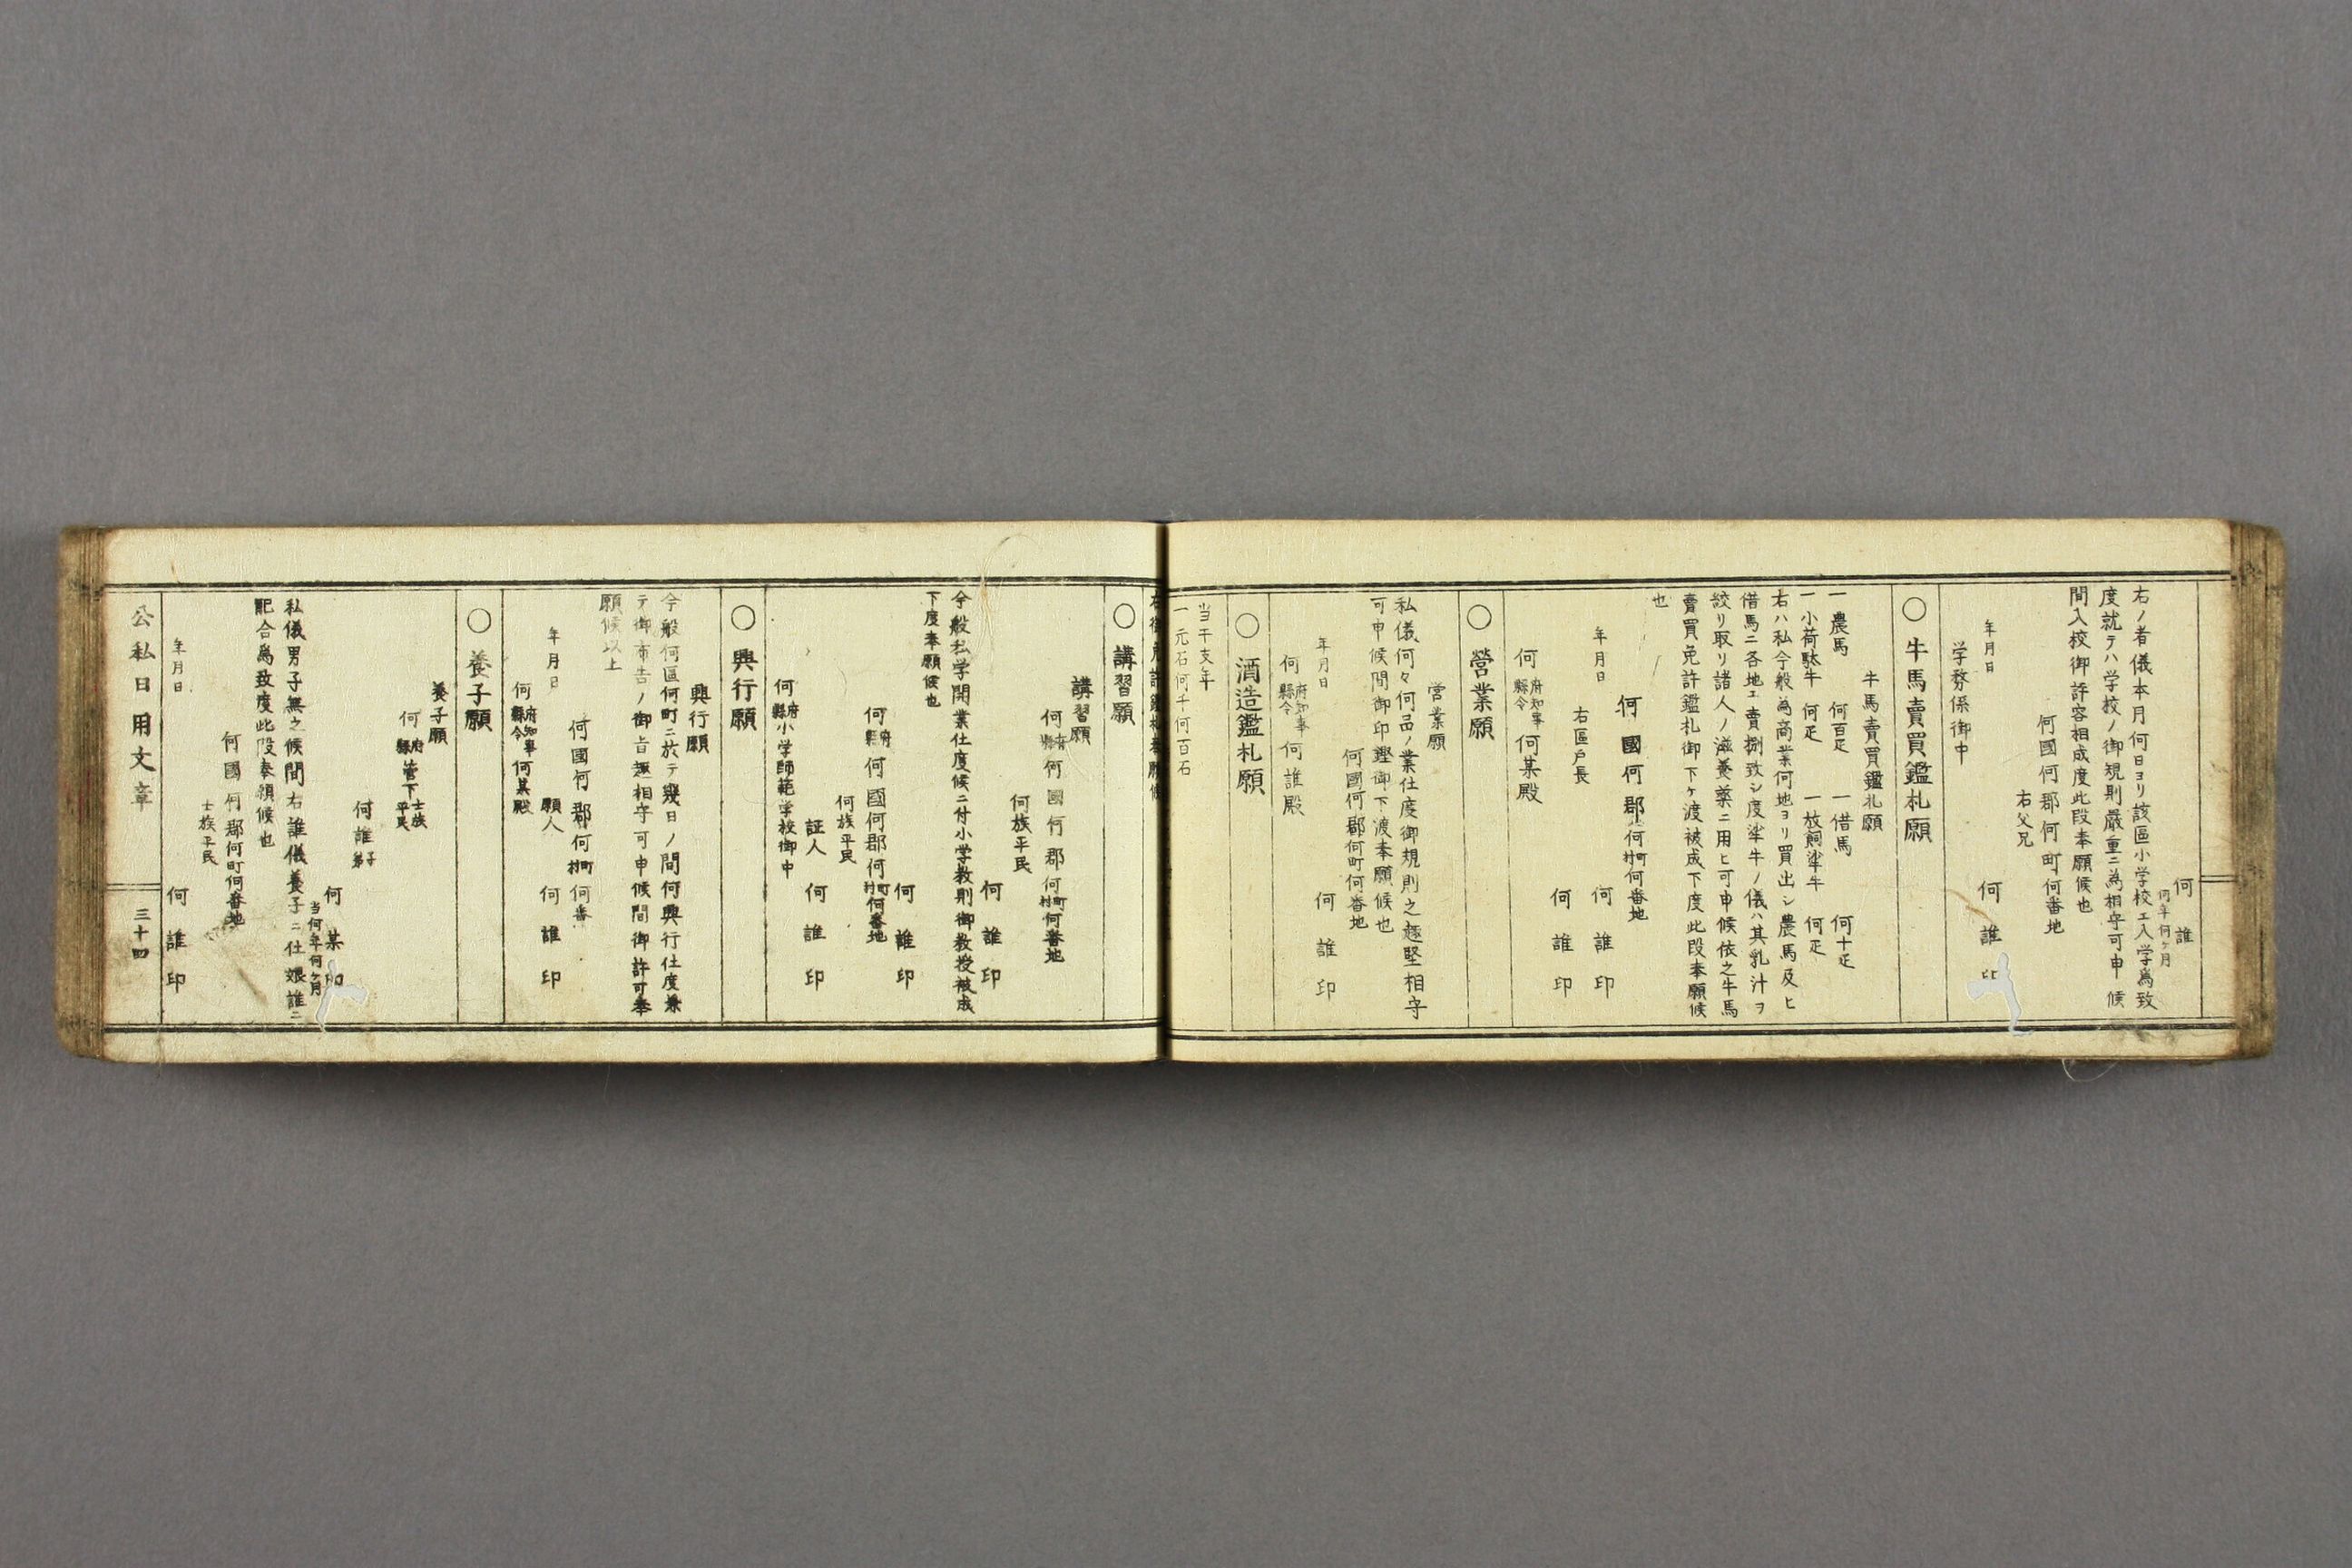 何誰
何年何ヶ月
右ノ者儀本月何日ヨリ該區小学校エ入学為致
度就テハ学校ノ御規則嚴重ニ為相守可申候
間入校御許容相成度此段奉願候也
何國何郡何町何番地
右父兄
年月日　何誰印
学務係御中
〇牛馬賣買鑑札願
牛馬賣買鑑札願
一農馬　何百疋　一借馬　何十疋
一小荷駄牛　何疋　一放飼牢牛　何疋
右ハ私今般為商業何地ヨリ買出シ農馬及ヒ
借馬ニ各地エ賣捌致シ度牢牛ノ儀ハ其乳汁ヲ
絞リ取リ諸人ノ滋養藥ニ用ヒ可申候依之牛馬
賣買免許鑑札御下ヶ渡被成下度此段奉願候
也
何國何郡何町村何番地
年月日　何誰印
右區戸長
何誰印
何府知事縣令何某殿
〇營業願
営業願
私儀何々何品ノ業仕度御規則之趣堅相守
可申候間御印鑑御下渡奉願候也
何國何郡何町何番地
年月日　何誰印
何府知事縣令何誰殿
〇酒造鑑札願
当干支年
一元石何千何百石
右御免許鑑札奉願候
〇講習願
講習願
何府縣何國何郡何町村何番地
何族平民
何誰印
今般私学開業仕度候ニ付小学教則御教授被成
下度奉願候也
何誰印
何府縣何國何郡何町村何番地
何族平民
証人　何誰印
何府縣小学師範学校御中
〇興行願
興行願
今般何區何町ニ於テ幾日ノ間何興行仕度兼
テ御布告ノ御旨趣相守可申候間御許可奉
願候以上
何國何郡何町村何番
年月日　願人　何誰印
何府知事縣令何某殿
〇養子願
養子願
何府縣管下士族平民
何誰子弟
何某印
当何年何ヶ月
私儀男子無之候間右誰儀養子ニ仕娘誰ニ
配合為致度此段奉願候也
何國何郡何町何番地
士族平民
年月日　何誰印
公私日用文章
三十四